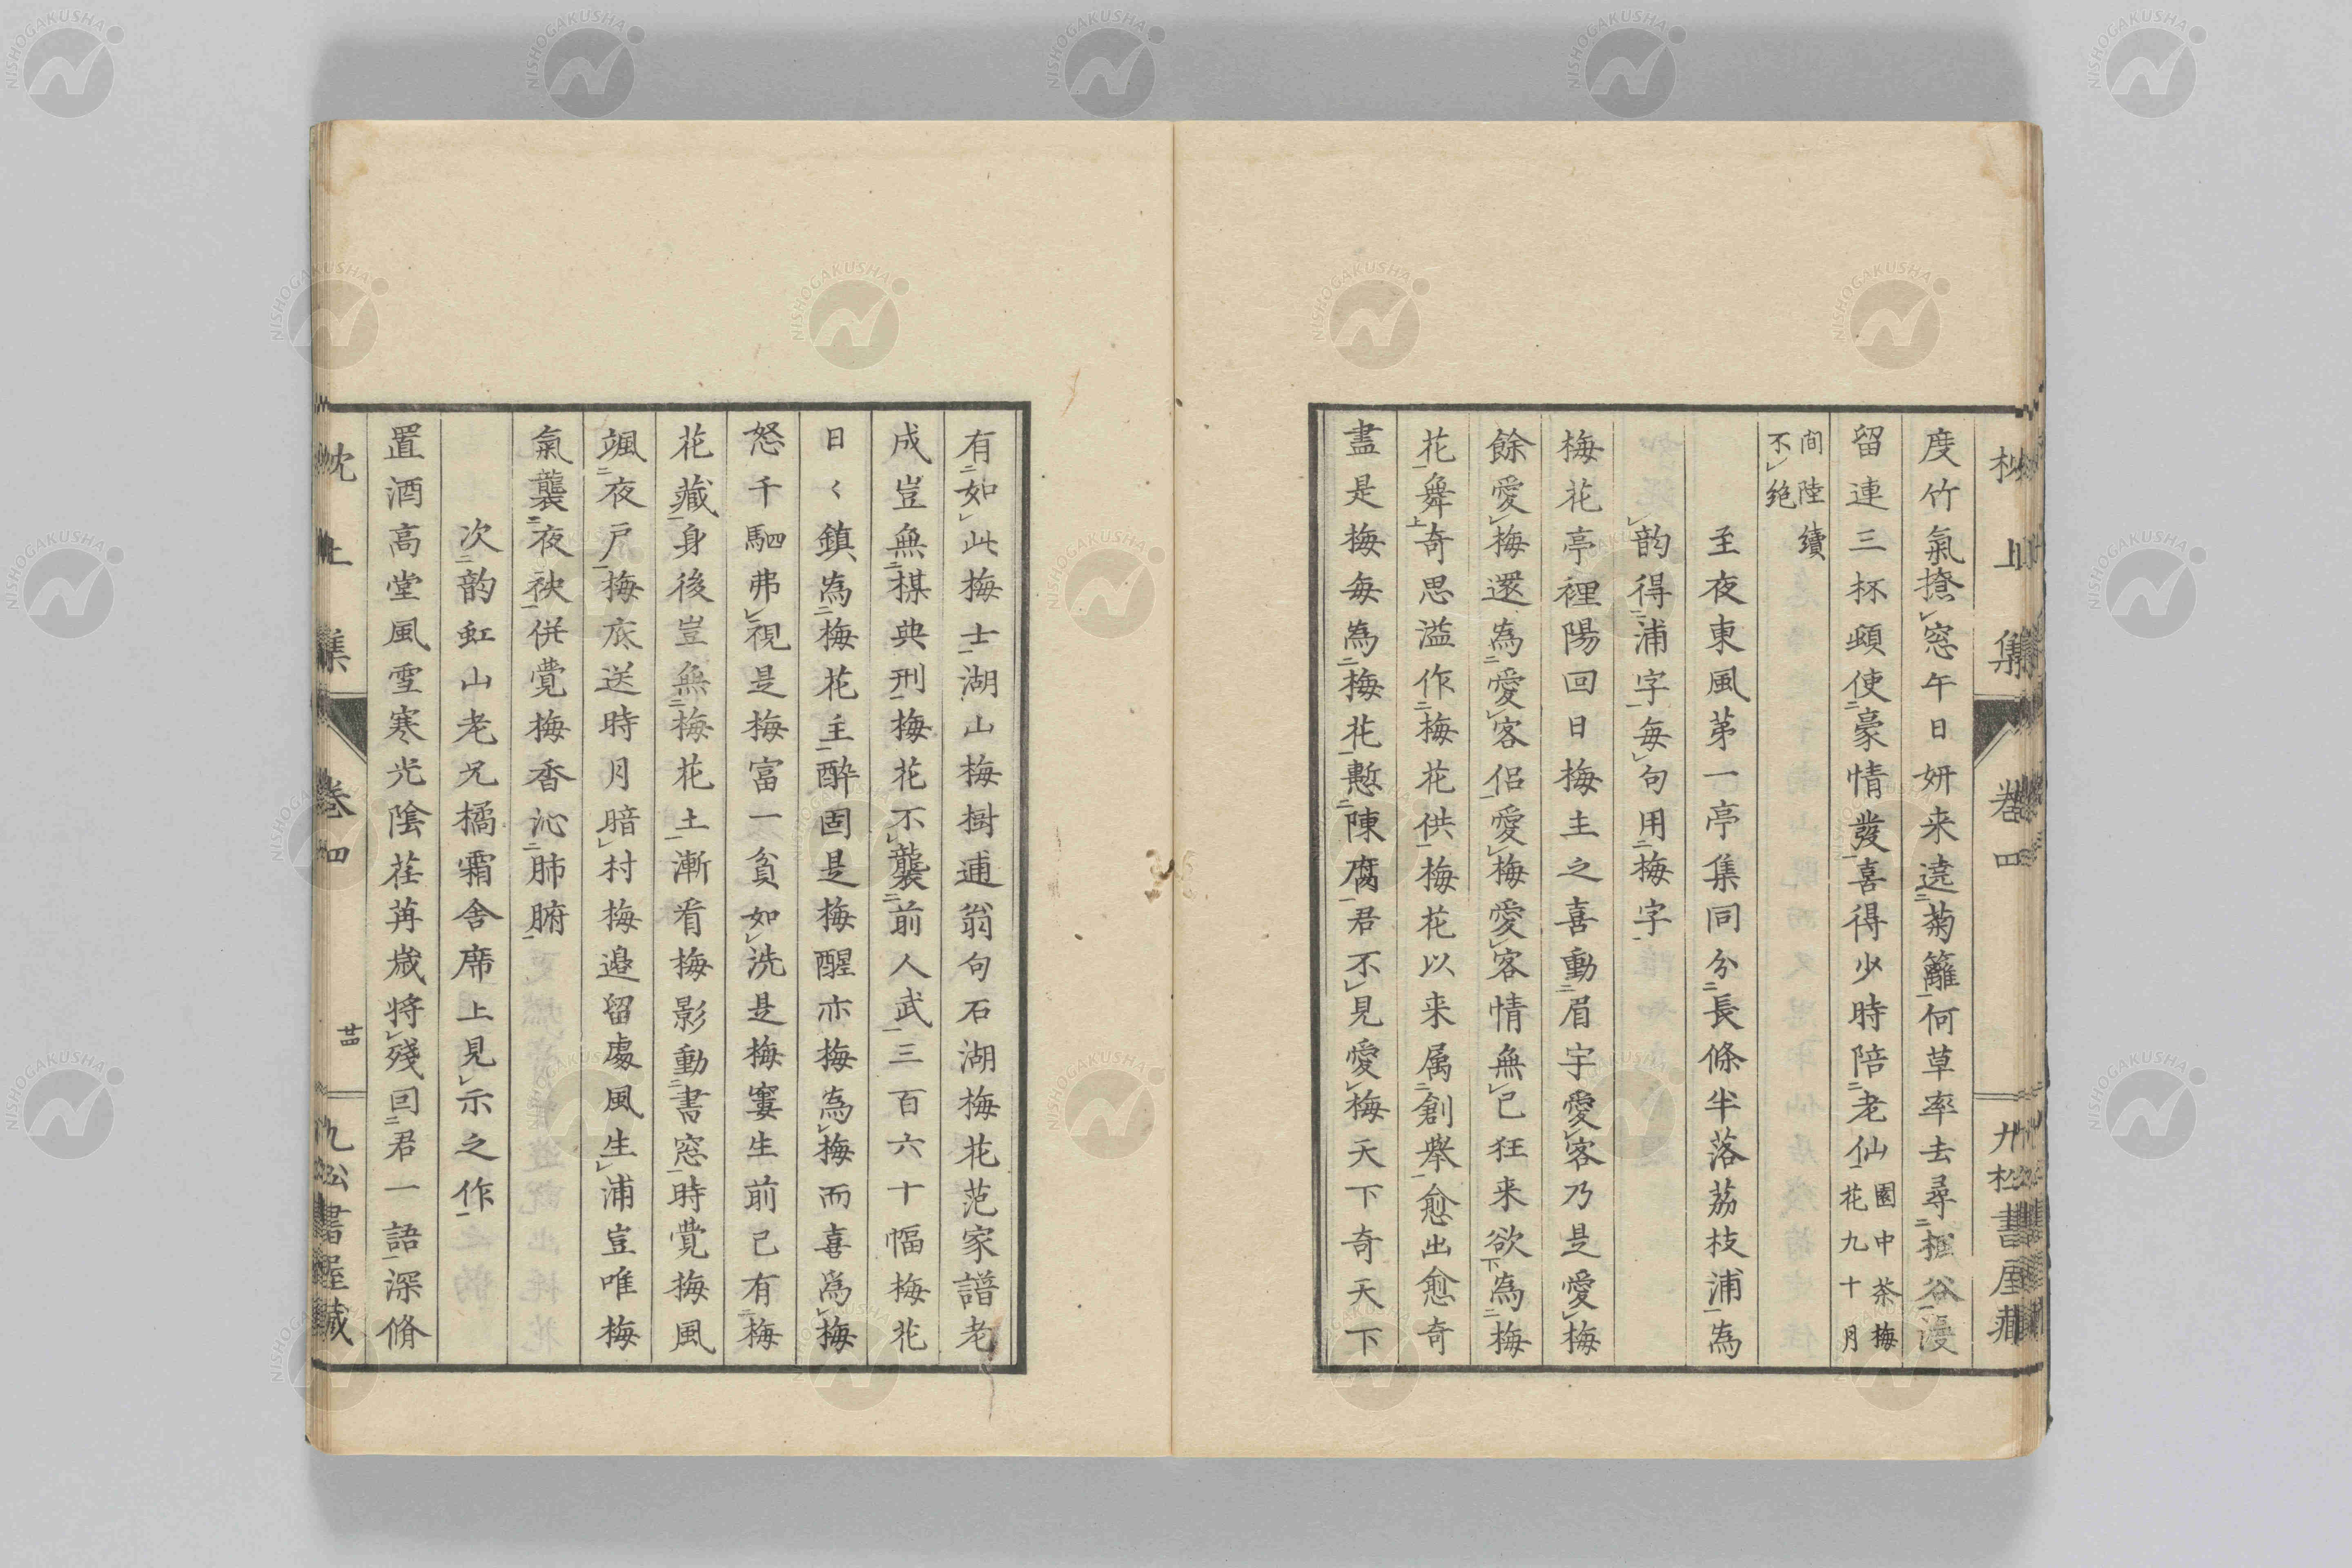 枕上集 卷四 九松書屋藏
度竹氣撩窓午日妍来遶菊籬何草率去尋梔谷漫
留連三杯頗使豪情發喜得少時陪老仙園中茶梅花九十月
間陸續不絶
至夜東風苐一亭集同分長條半落荔枝浦為
韵得浦字毎句用梅字
梅花亭裡陽回日梅主之喜動眉宇愛客乃是愛梅
餘愛梅還為愛客侶愛梅愛客情無已狂来欲為梅
花舞奇思溢作梅花供梅花以来属創舉愈出愈奇
盡是梅毎為梅花慙陳腐君不見愛梅天下奇天下
有如此梅士湖山梅樹逋翁句石湖梅花范家譜老
成豈無楳典刑梅花不襲前人武三百六十幅梅花
日〻鎮為梅花主醉固是梅醒亦梅為梅而喜爲梅
怒千駟弗視是梅富一貧如洗是梅窶生前已有梅
花藏身後豈無梅花土漸看梅影動書窓時覺梅風
颯夜戸梅底送時月暗村梅邉留處風生浦豈唯梅
氣襲夜袂併覺梅香沁肺腑
次韵虹山老兄橘霜舍席上見示之作
置酒高堂風雪寒光陰荏苒歳将殘回君一語深脩
枕上集 卷四 廿四 九松書屋藏
NISHOGAKUSHA